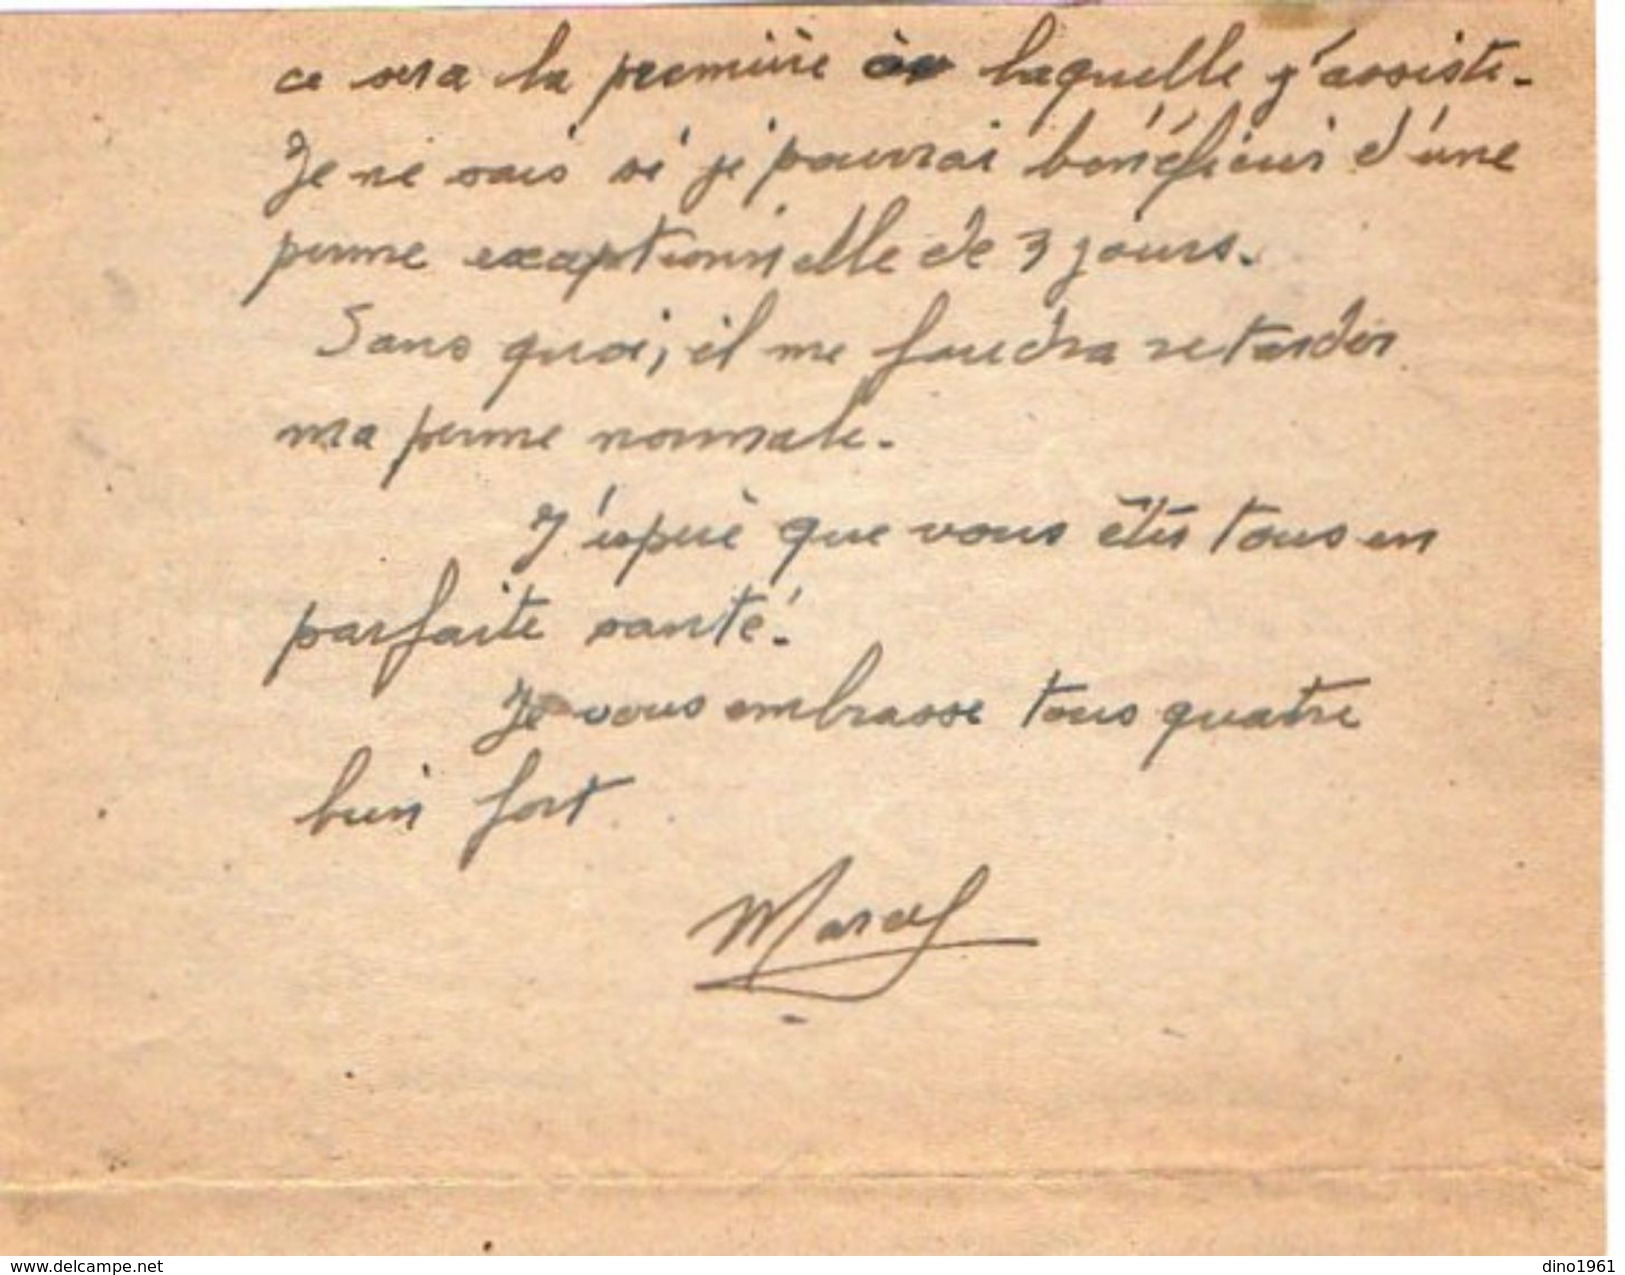 ce sera la première à laquelle j'assiste.
Je ne sais si je pourrai bénéficier d'une
perme exceptionnelle de 3 jours.
Sans quoi, il me faudra retarder
ma perme normale.
J'espère que vous êtes tous en
parfaite santé.
Je vous embrasse tous quatre
bien fort
Marcel
www.delcampe.net
dino1961